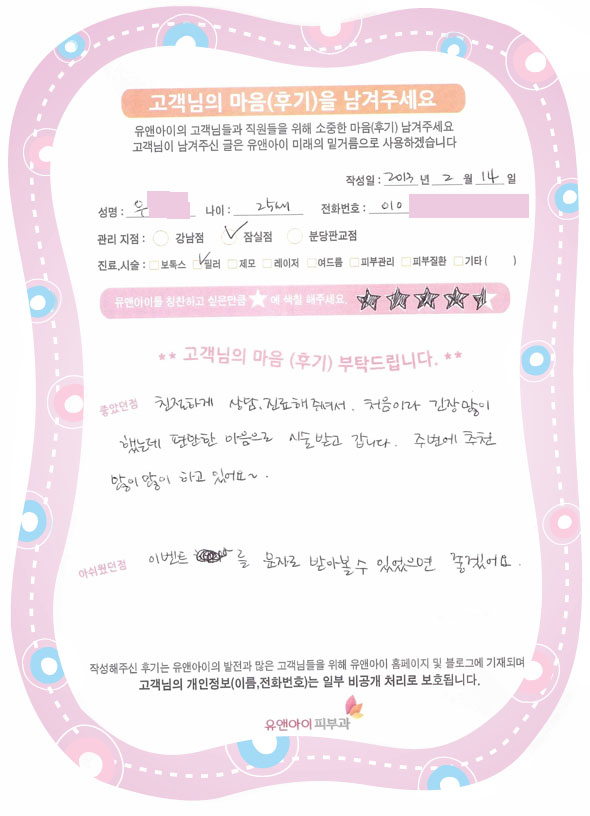 고객님의 마음(후기)을 남겨주세요
유앤아이의 고객님들과 직원들을 위해 소중한 마음(후기) 남겨주세요
고객님이 남겨주신 글은 유앤아이 미래의 밑거름으로 사용하겠습니다
작성일 : 2013 년 2 월 14 일
성명 : 우 나이 : 25세 전화번호 : 010
관리 지점 : 강남점 잠실점 분당판교점
진료,시술 : 보톡스 필러 제모 레이저 여드름 피부관리 피부질환 기타 ( )
유앤아이를 칭찬하고 싶은만큼 ★ 에 색칠 해주세요. ★★★★★
** 고객님의 마음 (후기) 부탁드립니다. **
좋았던점 친절하게 상담, 진료해주셔서. 처음이라 긴장많이
했는데 편안한 마음으로 시술받고 갑니다. 주변에 추천
많이많이 하고 있어요~.
아쉬웠던점 이벤트 를 문자로 받아볼 수 있었으면 좋겠어요.
작성해주신 후기는 유앤아이의 발전과 많은 고객님들을 위해 유앤아이 홈페이지 및 블로그에 기재되며
고객님의 개인정보(이름,전화번호)는 일부 비공개 처리로 보호됩니다.
유앤아이피부과